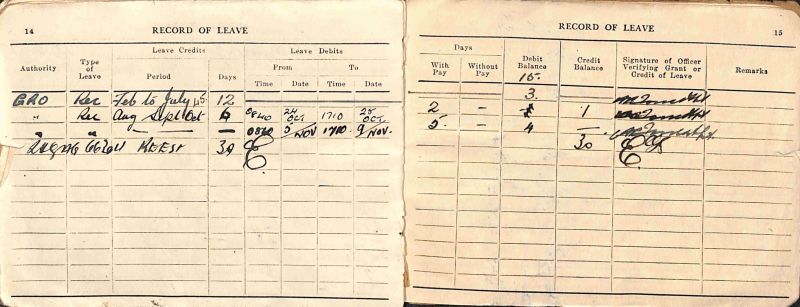 14
RECORD OF LEAVE
Authority
Type of Leave
Leave Credits
Leave Debits
Period
Days
From
To
Time
Date
Time
Date
GRO Rec Feb to July 45 12
" Rec Aug Sept Oct 6 0840 24 OCT 1710 25 OCT
" " — — 0840 5 NOV 1710 9 NOV
30
RECORD OF LEAVE
15
Days
With Pay
Without Pay
Debit Balance
Credit Balance
Signature of Officer Verifying Grant or Credit of Leave
Remarks
15.
3
2 — 1
5 — 4 —
30